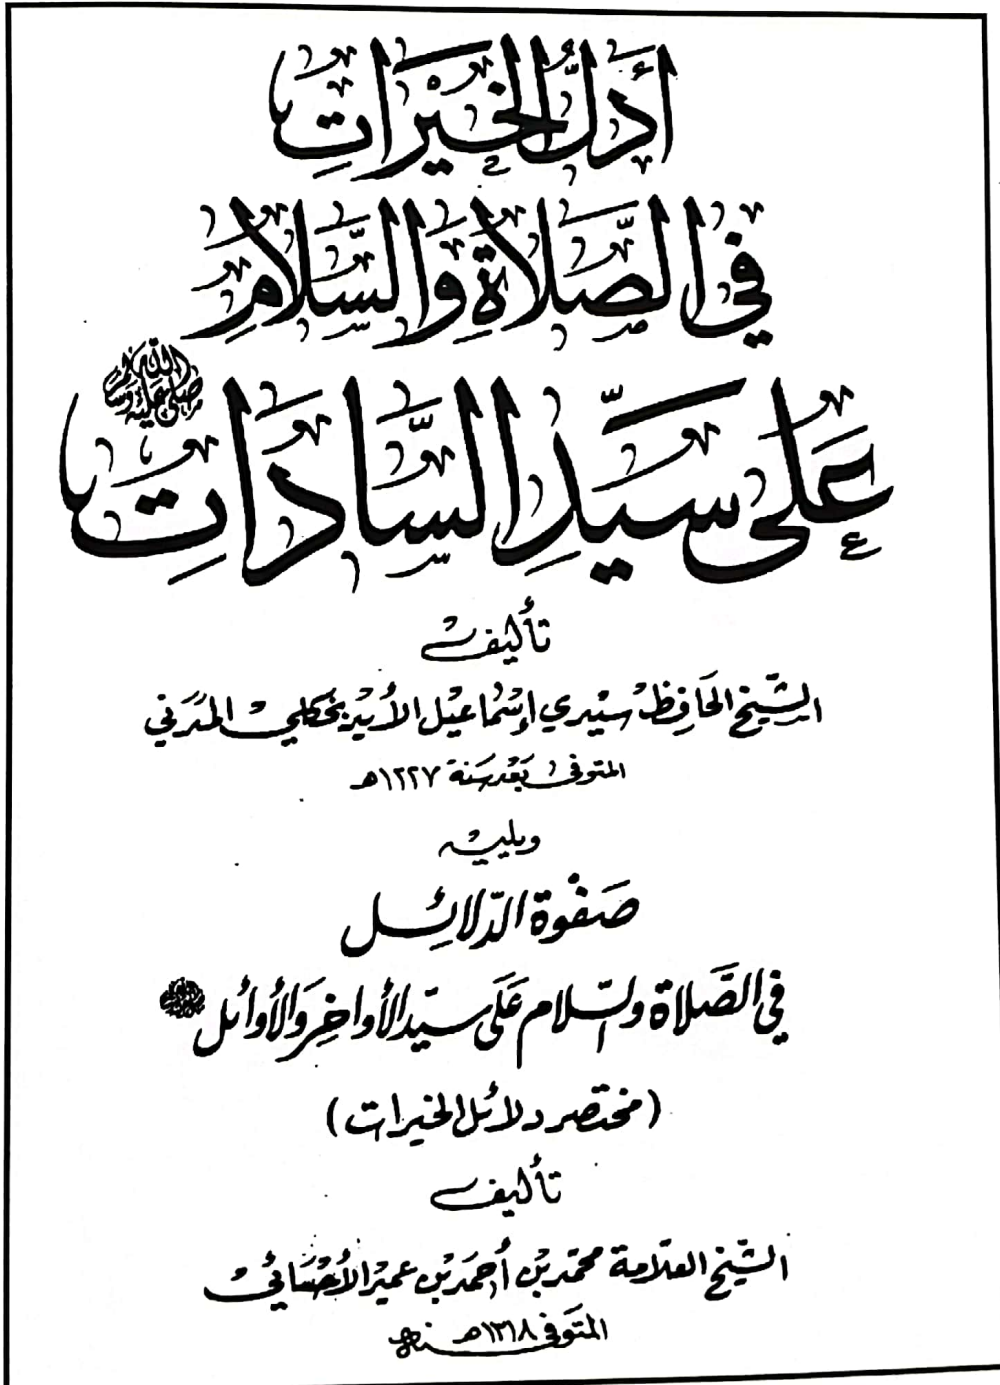 أَدَلُّ الخَيْرَاتِ
فِي الصَّلَاةِ وَالسَّلَامِ
عَلَى سَيِّدِ السَّادَاتِ
صلى الله عليه وسلم
تأليف
الشيخ الحافظ سيدي إسماعيل الأيدينجكلي المدني
المتوفى بعد سنة ١٢٢٧هـ
ويليه
صفوة الدلائل
في الصلاة والسلام على سيد الأواخر والأوائل
(مختصر دلائل الخيرات)
تأليف
الشيخ العلامة محمد بن أحمد بن عمير الأحسائي
المتوفى ١٣١٨هـ